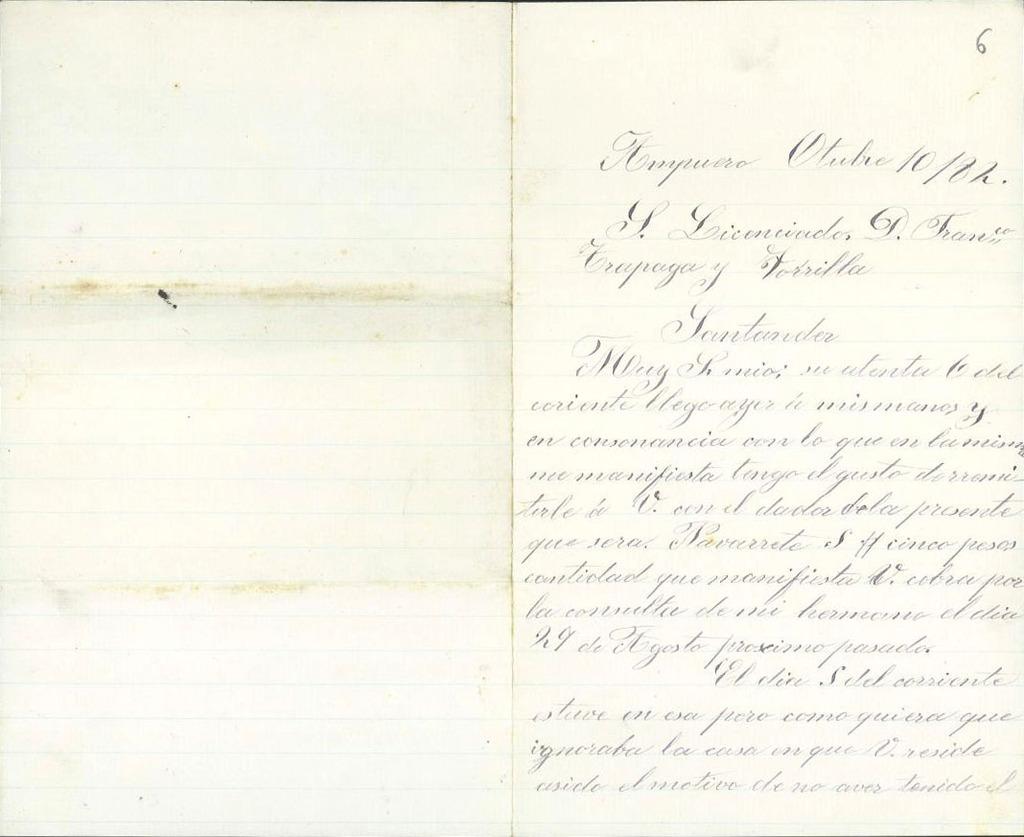 6
Ampuero Otubre 10/82.
S. Licenciado, D. Franco
Trapaga y Zorrilla
Santander
Muy Sr mio; su atenta 6 del
coriente llego ayer á mis manos y
en consonancia con lo que en la misma
me manifiesta tengo el gusto derremi-
tirle á V. con el dador de la presente
que sera. Navarrete 5 ff cinco pesos
cantidad que manifiesta V. cobra por
la consulta de mi hermano el dia
29 de Agosto proximo pasado.
El dia 5 del corriente
estuve en esa pero como quiera que
ignoraba la casa en que V. reside
asido el motivo de no aver tenido el